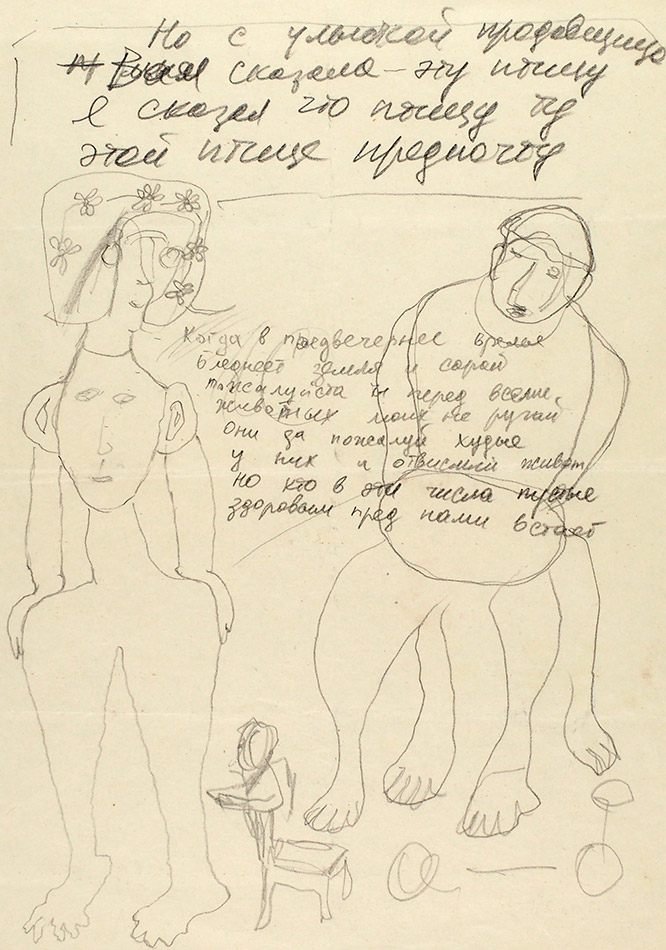 Но с улыбкой продавщица
сказала – эту птицу
Я сказал что птицу ту
этой птице предпочту
Когда в предвечернее время
бледнеет земля и сарай
пожалуйста ты перед всеми
животных моих не ругай
Они да пожалуй худые
у них и отвислый живот
но кто в эти числа пустые
здоровым пред нами встаёт